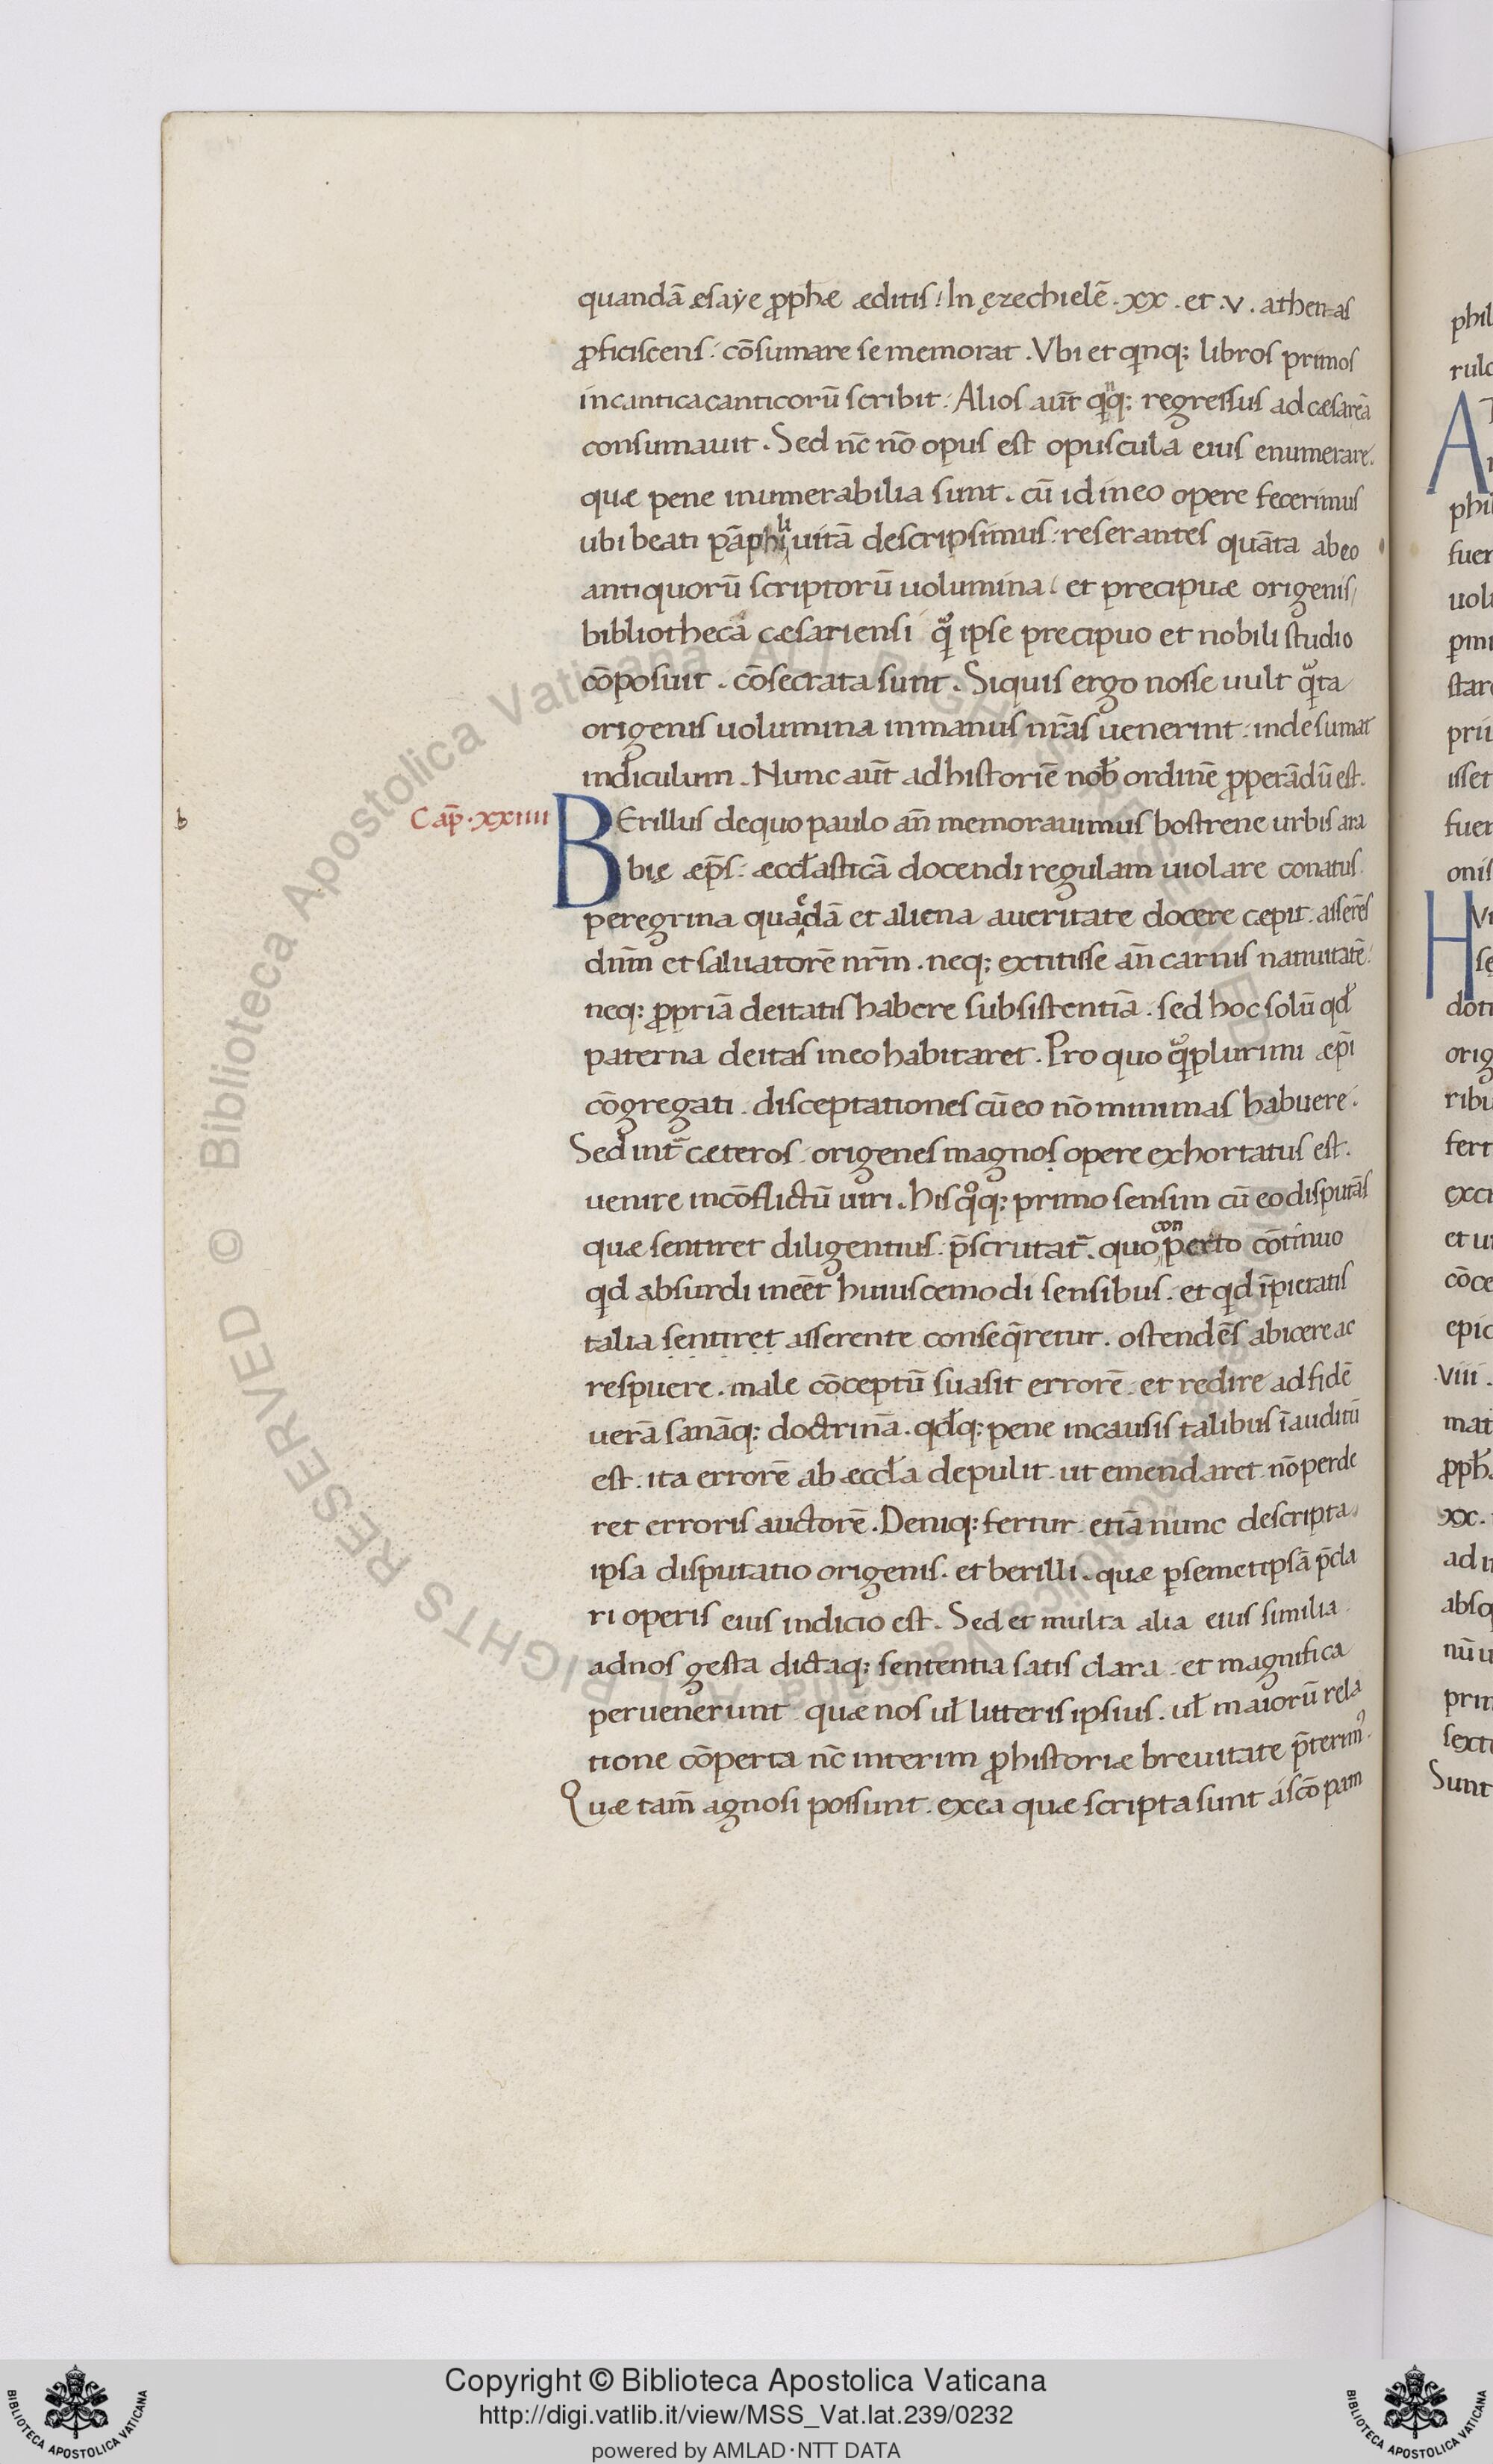 quandā æsaẏe ꝓphæ æditis! In ęzechielē . xx . et . v . athenas
ꝓficiscens : cōsumare se memorat . Vbi et qinq; libros primos
incantica canticorū scribit : Alios aūt qinq; regressus ad cæsareā
consumauit . Sed nc̄ nō opus est opuscula eius enumerare .
quæ pene inumerabilia sunt . cū id ineo opere fecerimus
ubi beati pāphili uitā descripsimus : reserantes quāta abeo
antiquorū scriptorū uolumina / et precipuæ origenis /
bibliothecā cæsariensi / qͦꝫ ipse precipuo et nobili studio
cōposuit . cōsecrata sunt . Siquis ergo nosse uult qᷓta
origenis uolumina inmanus nr̄as uenerint : inde sumat
indiculum . Nunc aūt ad historiē nob̄ ordinē ꝓperādū est .
Cap̄ . xxiiii
b
BErillus dequo paulo an̄ memorauimus bostrene urbis ara
bię æp̄s : æccl̄asticā docendi regulam uiolare conatus .
peregrina quædā et aliena aueritate docere cæpit . asserēs
dn̄m et saluatorē nr̄m . neq; extitisse an̄ carnis natiuitatē :
neq; ꝓpriā deitatis habere subsistentiā . sed hoc solū qd̄
paterna deitas ineo habitaret . Pro quo qͦꝫ plurimi æpi
cōgregati . disceptationes cū eo nō minimas habuere :
Sed int̄ cæteros : origenes magnos opere exhortatus est .
uenire incōflictū uiri . hisqͦq; primo sensim cū eo disputās
quæ sentiret diligentius . p̄scrutat̄ . quo conperto cōtinuo
qd absurdi ineēt huiuscemodi sensibus . et qd īpietatis
talia sentiret asserente conseq̄retur . ostendēs abicere ac
respuere . male cōceptū suasit errorē . et redire ad fidē
uerā sanāq; doctrinā . qd̄q; pene incausis talibus īauditū
est : ita errorē ab æccl̄a depulit . ut emendaret . nō perde
ret erroris auctorē . Deniq; fertur . etiā nunc descripta
ipsa disputatio origenis . et berilli . quæ ꝑsemetipsā p̄cla
ri operis eius indicio est . Sed et multa alia eius similia .
adnos gesta dictaq; sententia satis clara . et magnifica
peruenerunt . quæ nos ul̄ litteris ipsius . ul̄ maiorū rela
tione cōperta nc̄ interim ꝓhistoriæ breuitate p̄terimꝰ .
Quæ tam̄ agnosi possunt . exea quæ scripta sunt áscō pam
phil
rulo
A
phi
fuer
uolu
ꝑmi
stare
prii
isset
fuer
onis
H
doti
orig
ribu
fert
exci
et ui
cōce
epic
. viii .
mat
ꝓph
xx .
ad i
absq
nū u
prin
sexto
Sunt
Biblioteca Apostolica Vaticana ALL RIGHTS RESERVED ©
Copyright © Biblioteca Apostolica Vaticana
http://digi.vatlib.it/view/MSS_Vat.lat.239/0232
powered by AMLAD·NTT DATA
BIBLIOTECA APOSTOLICA VATICANA
BIBLIOTECA APOSTOLICA VATICANA